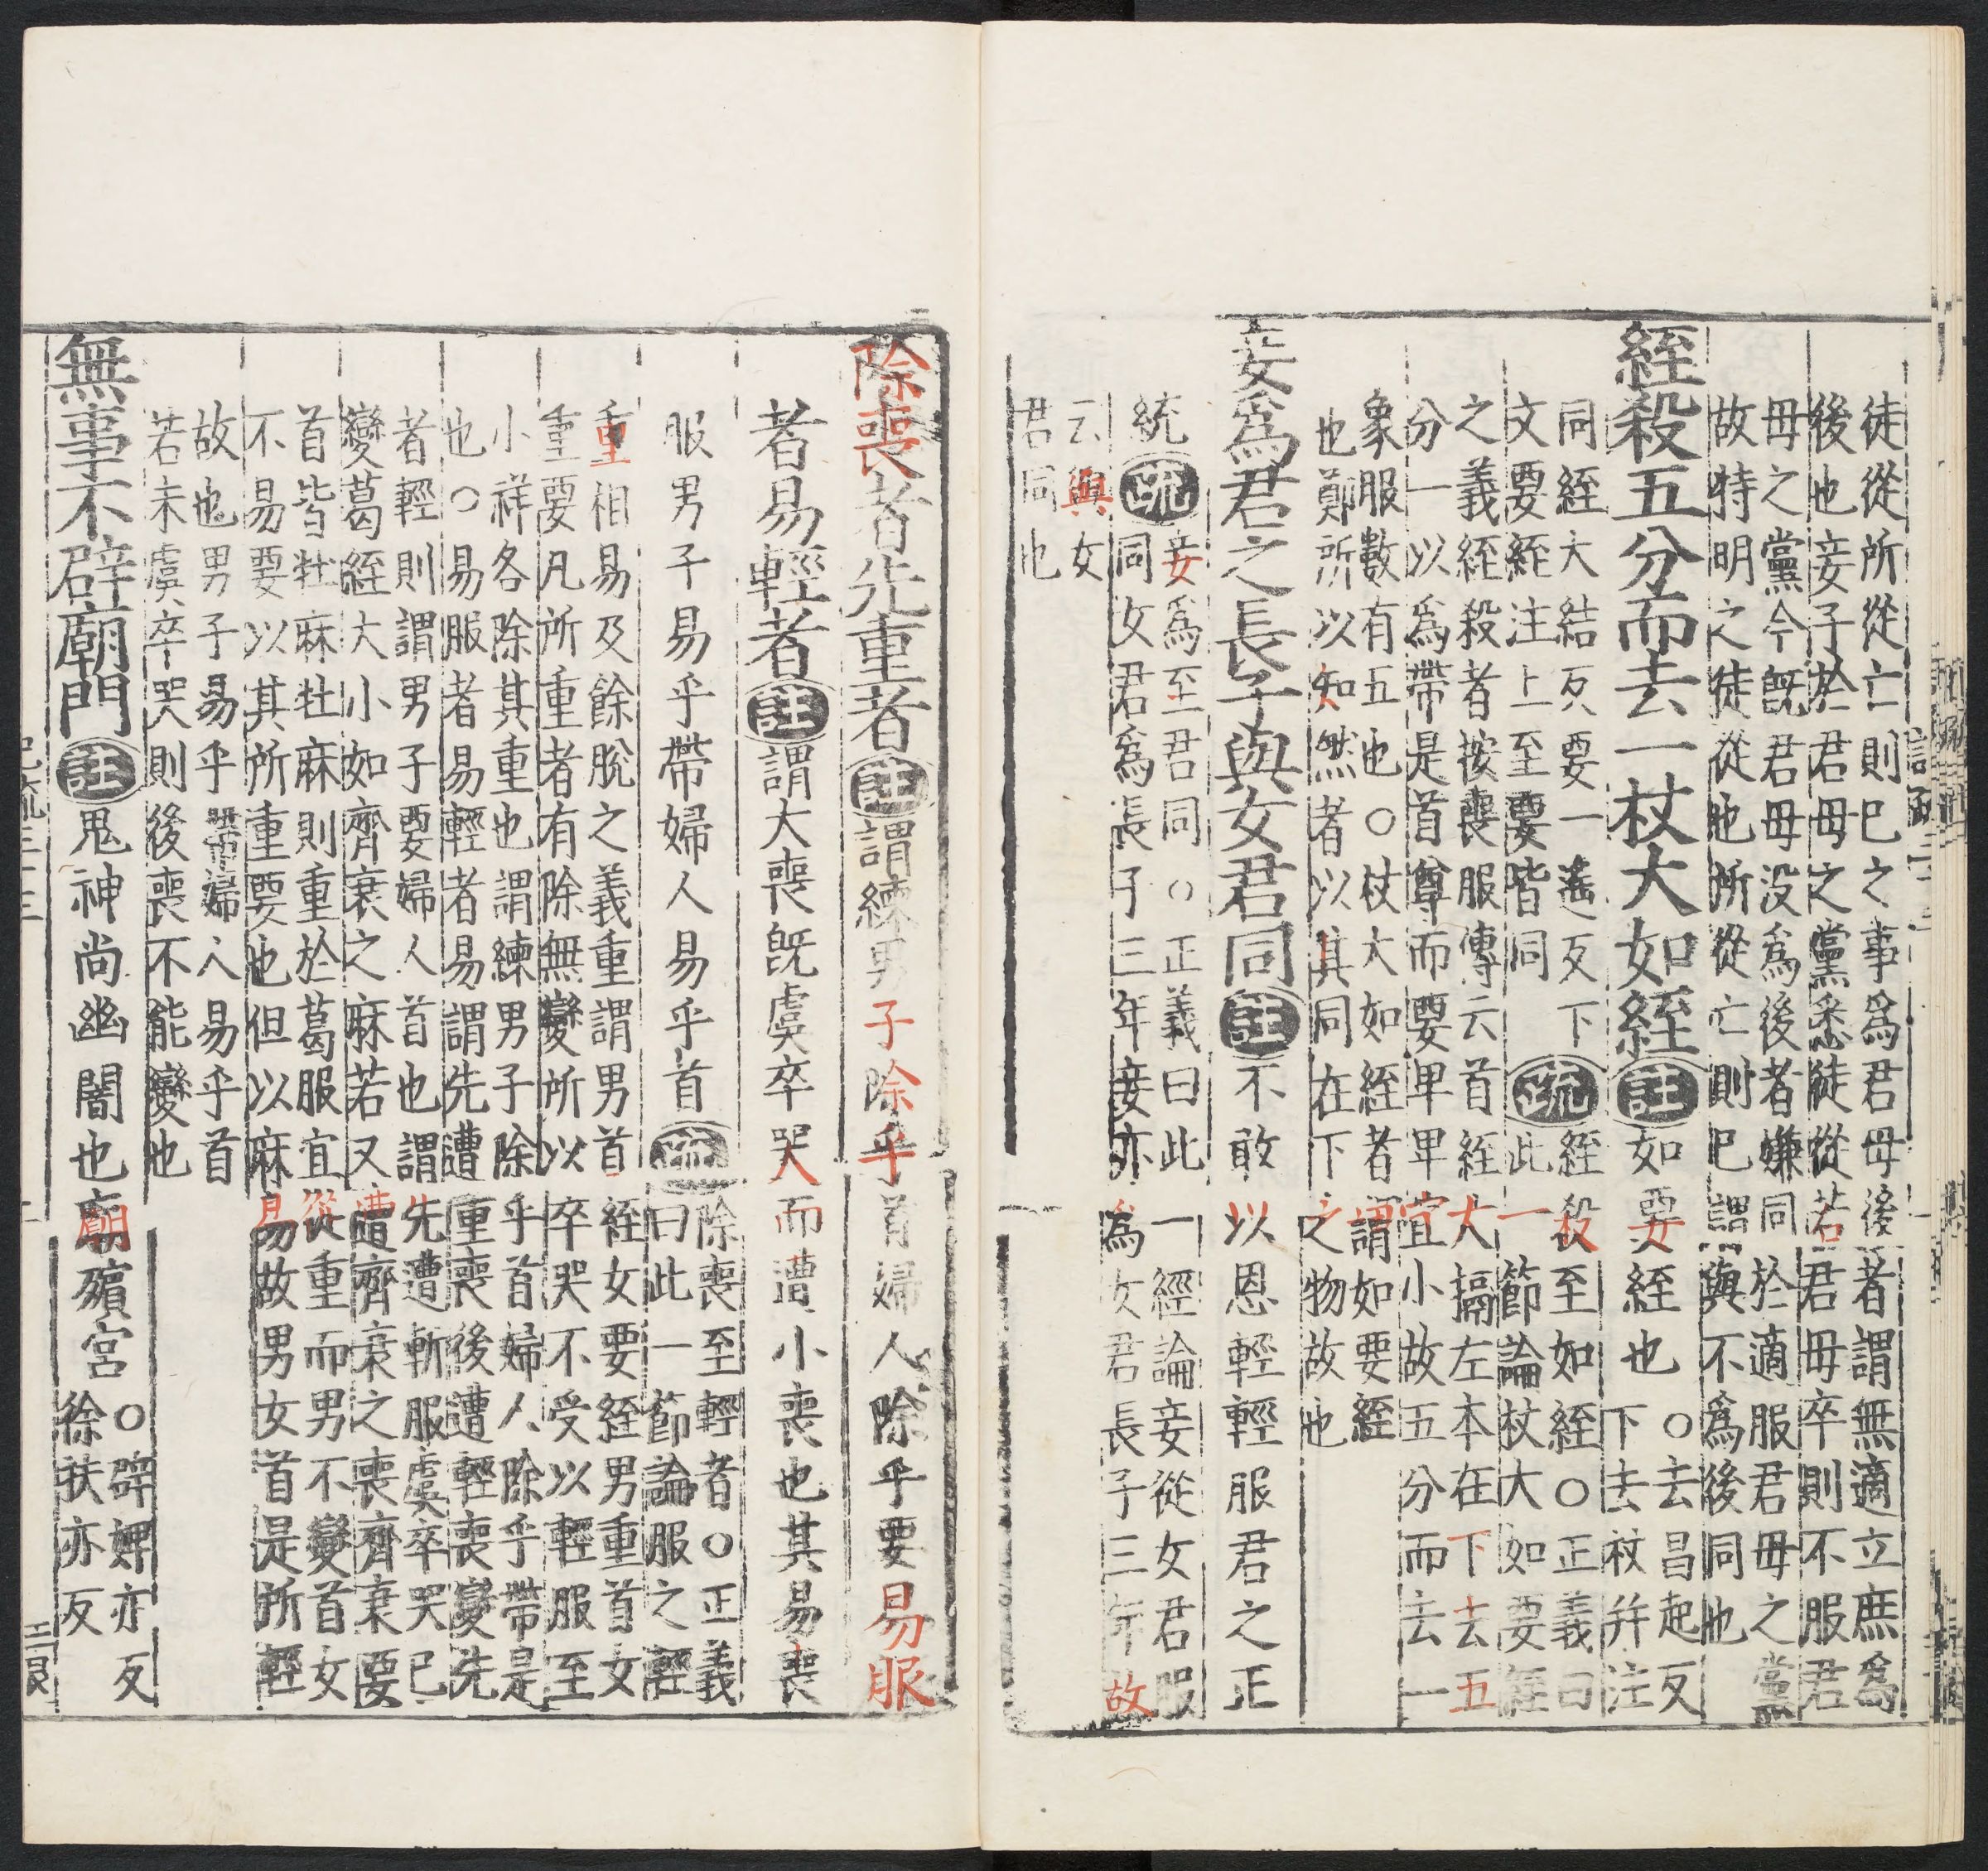 徒從所從亡則已之事為君母後者謂無適立庶為
後也妾子於君母之黨悉徒從若君母卒則不服君
母之黨今既君母沒為後者嫌同於適服君母之黨
故特明之徒從也所從亡則已謂與不為後同也
絰殺五分而去一杖大如絰註如要絰也○去昌起反
下去杖幷注
同絰大結反要一遙反下
文要絰注上至要皆同疏絰殺至如絰○正義曰
此一節論杖大如要絰
之義絰殺者按喪服傳云首絰大搹左本在下去五
分一以為帶是首尊而要卑卑宜小故五分而去一
象服數有五也○杖大如絰者謂如要絰
也鄭所以知然者以其同在下之物故也
妾為君之長子與女君同註不敢以恩輕輕服君之正
統疏妾為至君同○正義曰此一經論妾從女君服
同女君為長子三年妾亦為女君長子三年故
云與女
君同也
除喪者先重者註謂練男子除乎首婦人除乎要易服
者易輕者註謂大喪既虞卒哭而遭小喪也其易喪
服男子易乎帶婦人易乎首疏除喪至輕者○正義
曰此一節論服之輕
重相易及餘脫之義重謂男首絰女要絰男重首女
重要凡所重者有除無變所以卒哭不受以輕服至
小祥各除其重也謂練男子除乎首婦人除乎帶是
也○易服者易輕者易謂先遭重喪後遭輕喪變先
者輕則謂男子要婦人首也謂先遭斬服虞卒哭已
變葛絰大小如齊衰之麻若又遭齊衰之喪齊衰要
首皆牡麻牡麻則重於葛服宜從重而男不變首女
不易要以其所重要也但以麻易故男女首是所輕
故也男子易乎帶婦人易乎首
若未虞卒哭則後喪不能變也
無事不辟廟門註鬼神尚幽闇也廟殯宮○辟婢亦反
徐扶亦反